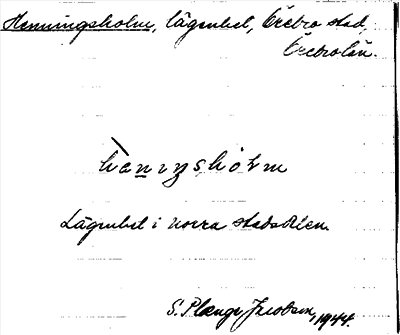 Henningsholm, lägenhet, Örebro stad,
Örebro län.
hànıŋshòlm
Lägenhet i norra stadsdelen.
S. Plænge Jacobson, 1944.